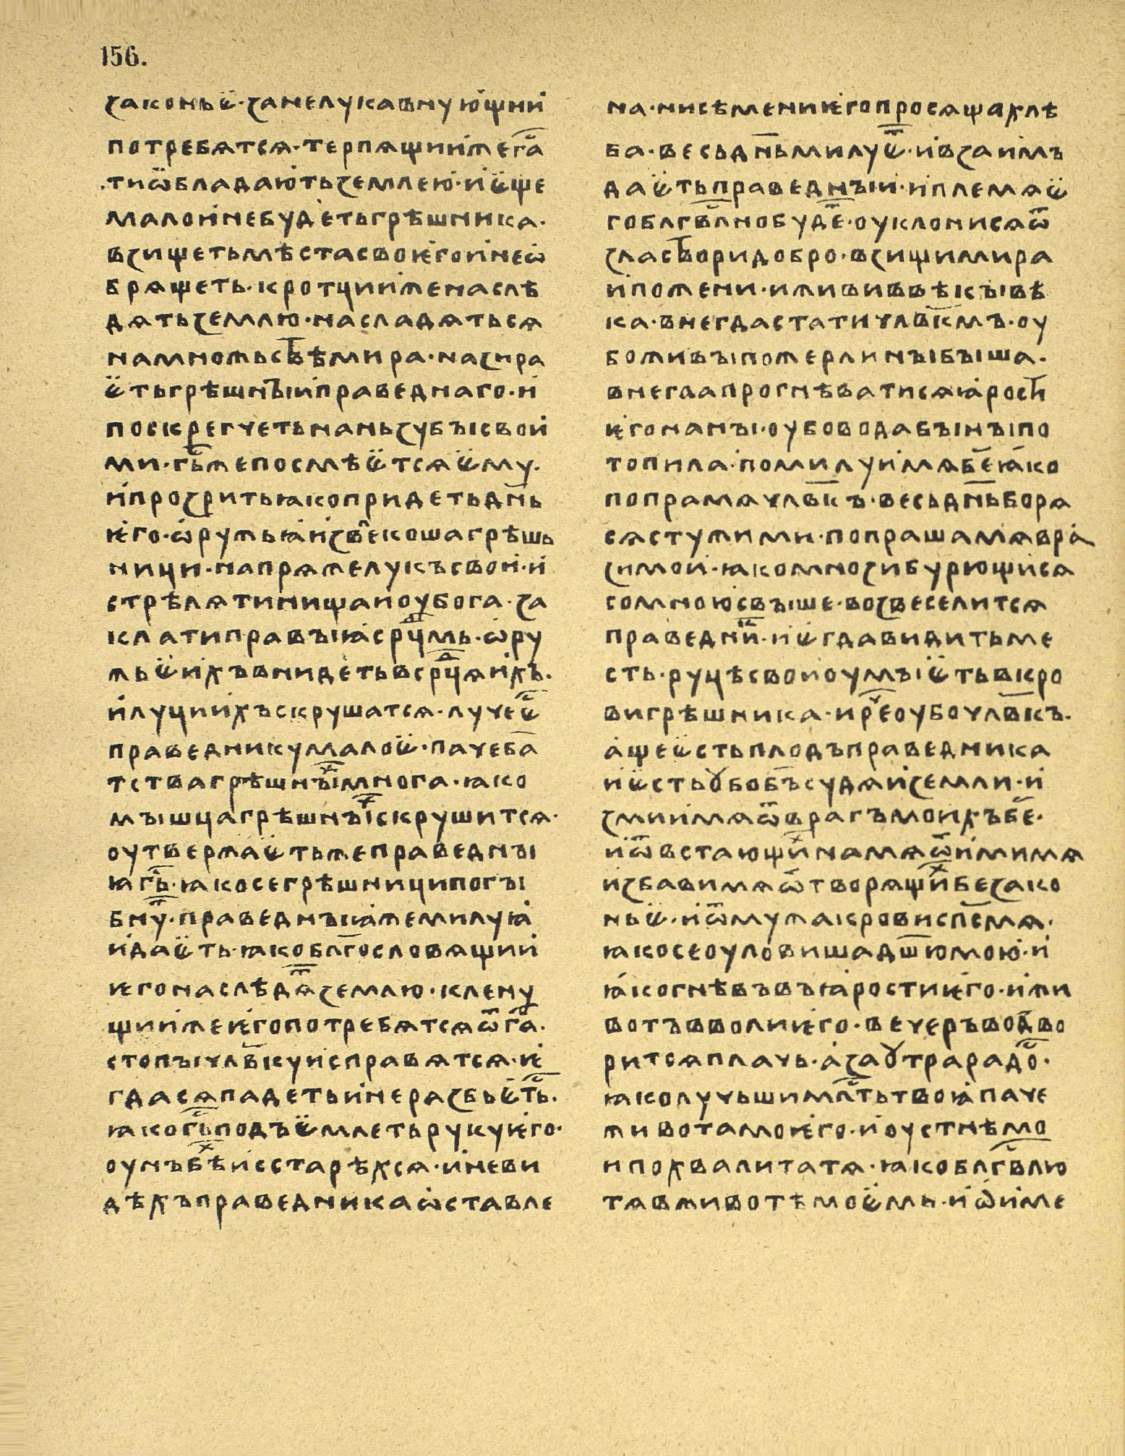 156.
законьѥ· занелукавнующии
потребятся· терпящиижег҃а
·тиѿбладаютьземлею· иѥще
малоинебудетьгрѣшника·
взищетьмѣстасвоѥгоинеѡ
брящеть· кротциижен​аслѣ
дятьземлю· насладяться
намножьствѣмира· назира
ѥтьгрѣшныиправеднаго· и
поскрегчетьнаньзубысвои
ми· г҃ьжепосмѣѥтсяѥму·
ипрозритьꙗкопридетьдн҃ь
ѥго· ѡружьꙗизвлекошагрѣшь
ници· напряжелуксвои· и
стрѣлятинищаиоубога· за
клатиправыꙗср҃цмь· ѡру
жьѥихъвнидетьвср҃цяихъ·
илуциихъскрушатся· лучеѥ
праведникумалоѥ· пачеба
тствагрѣшнымнога· ꙗко
мышцагрѣшныіскрушится·
оутвержаѥтьжеправедны
ꙗг҃ь· ꙗкосегрѣшниципогы
бну· праведныꙗжемилуꙗ
идаѥть· ꙗкобл҃гословящии
ѥгонаслѣдяземлю· клену
щиижеѥгопотребятсяѿг҃а·
стопычл҃вкуисправятся· ѥ
гдасяпадетьинеразбьѥть·
ꙗког҃ьподъѥмлетьрукуѥго·
оунъбѣисстарѣхся· иневи
дѣхъправедникаѡставле
на· нисѣмениѥгопросящахлѣ
ба· весьдн҃ьмилуѥ· ивзаимъ
даѥтьправедныи· иплемяѥ
гобл҃гвлнобуде· оуклонисяѿ
зластворидобро· взищимира
ипожени· ижививвѣкывѣ
ка· внегдастатичл҃вкмъ· оу
боживыпожерлиныбыша·
внегдапрогнѣватисяꙗрости
ѥгонаны· оубоводабыныпо
топила· помилуимябеꙗко
попрамячл҃вкъ· весьдн҃ьборя
сястужими· попрашамяврａ
зимои· ꙗкомнозибурющися
сомноюсвыше· возвеселится
праведнии· иѥгдавидитьме
сть· руцѣсвоиоумыѥтьвкро
вигрѣшника· ир҃еоубочл҃вкъ·
ащеѥстьплодъправедника
иѥстьꙋбобъсудяиземли· и
змиимяѿврагъмоихъбе·
иѿвстающинамяѿимимя
избавимяѿтворящиибезако
ньѥ· иѿмужакровиспсмя·
ꙗкосеоуловишадшюмою· и
ꙗкогнѣвъвъꙗростиѥго· ижи
вотъвволиѥго· вечеръводво
ритсяплачь· азаꙋтрарадо·
ꙗколучьшимл҃тьтвоꙗпаче
животамоѥго· иоустнѣмо
ипохвалитатя· ꙗкобл҃гвлю
тявживотѣмоѥмь· иѡиме